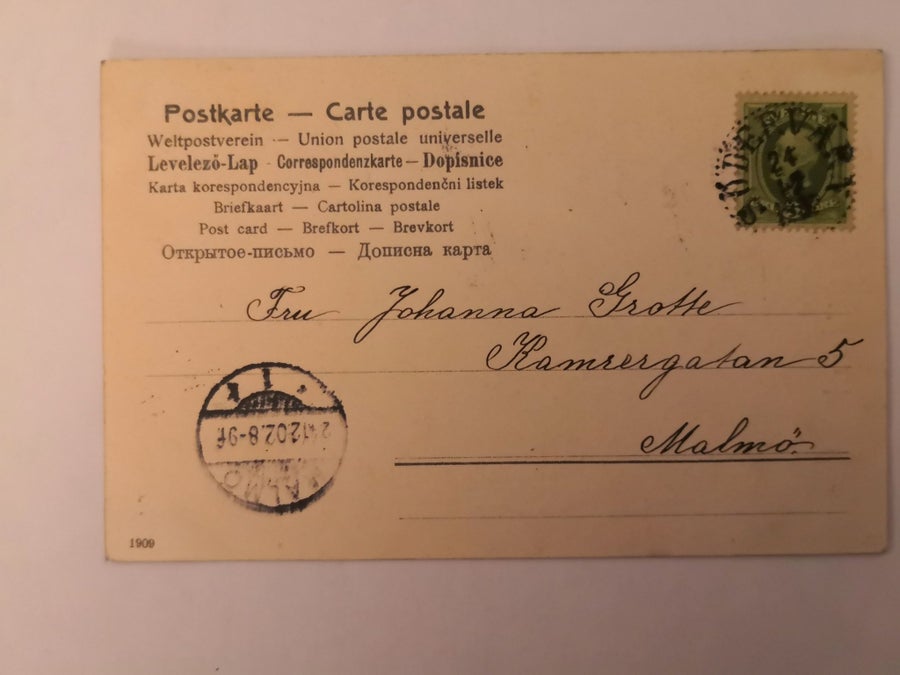 Postkarte — Carte postale
Weltpostverein — Union postale universelle
Levelező-Lap - Correspondenzkarte — Dopisnice
Karta korespondencyjna — Korespondenční listek
Briefkaart — Cartolina postale
Post card — Brefkort — Brevkort
Открытое-письмо — Дописна карта
SÖDERVÄRN
24
12
Fru Johanna Grotte
Kamrergatan 5
Malmö.
K 1
24.12.02.8-9f.
MALMÖ
1909